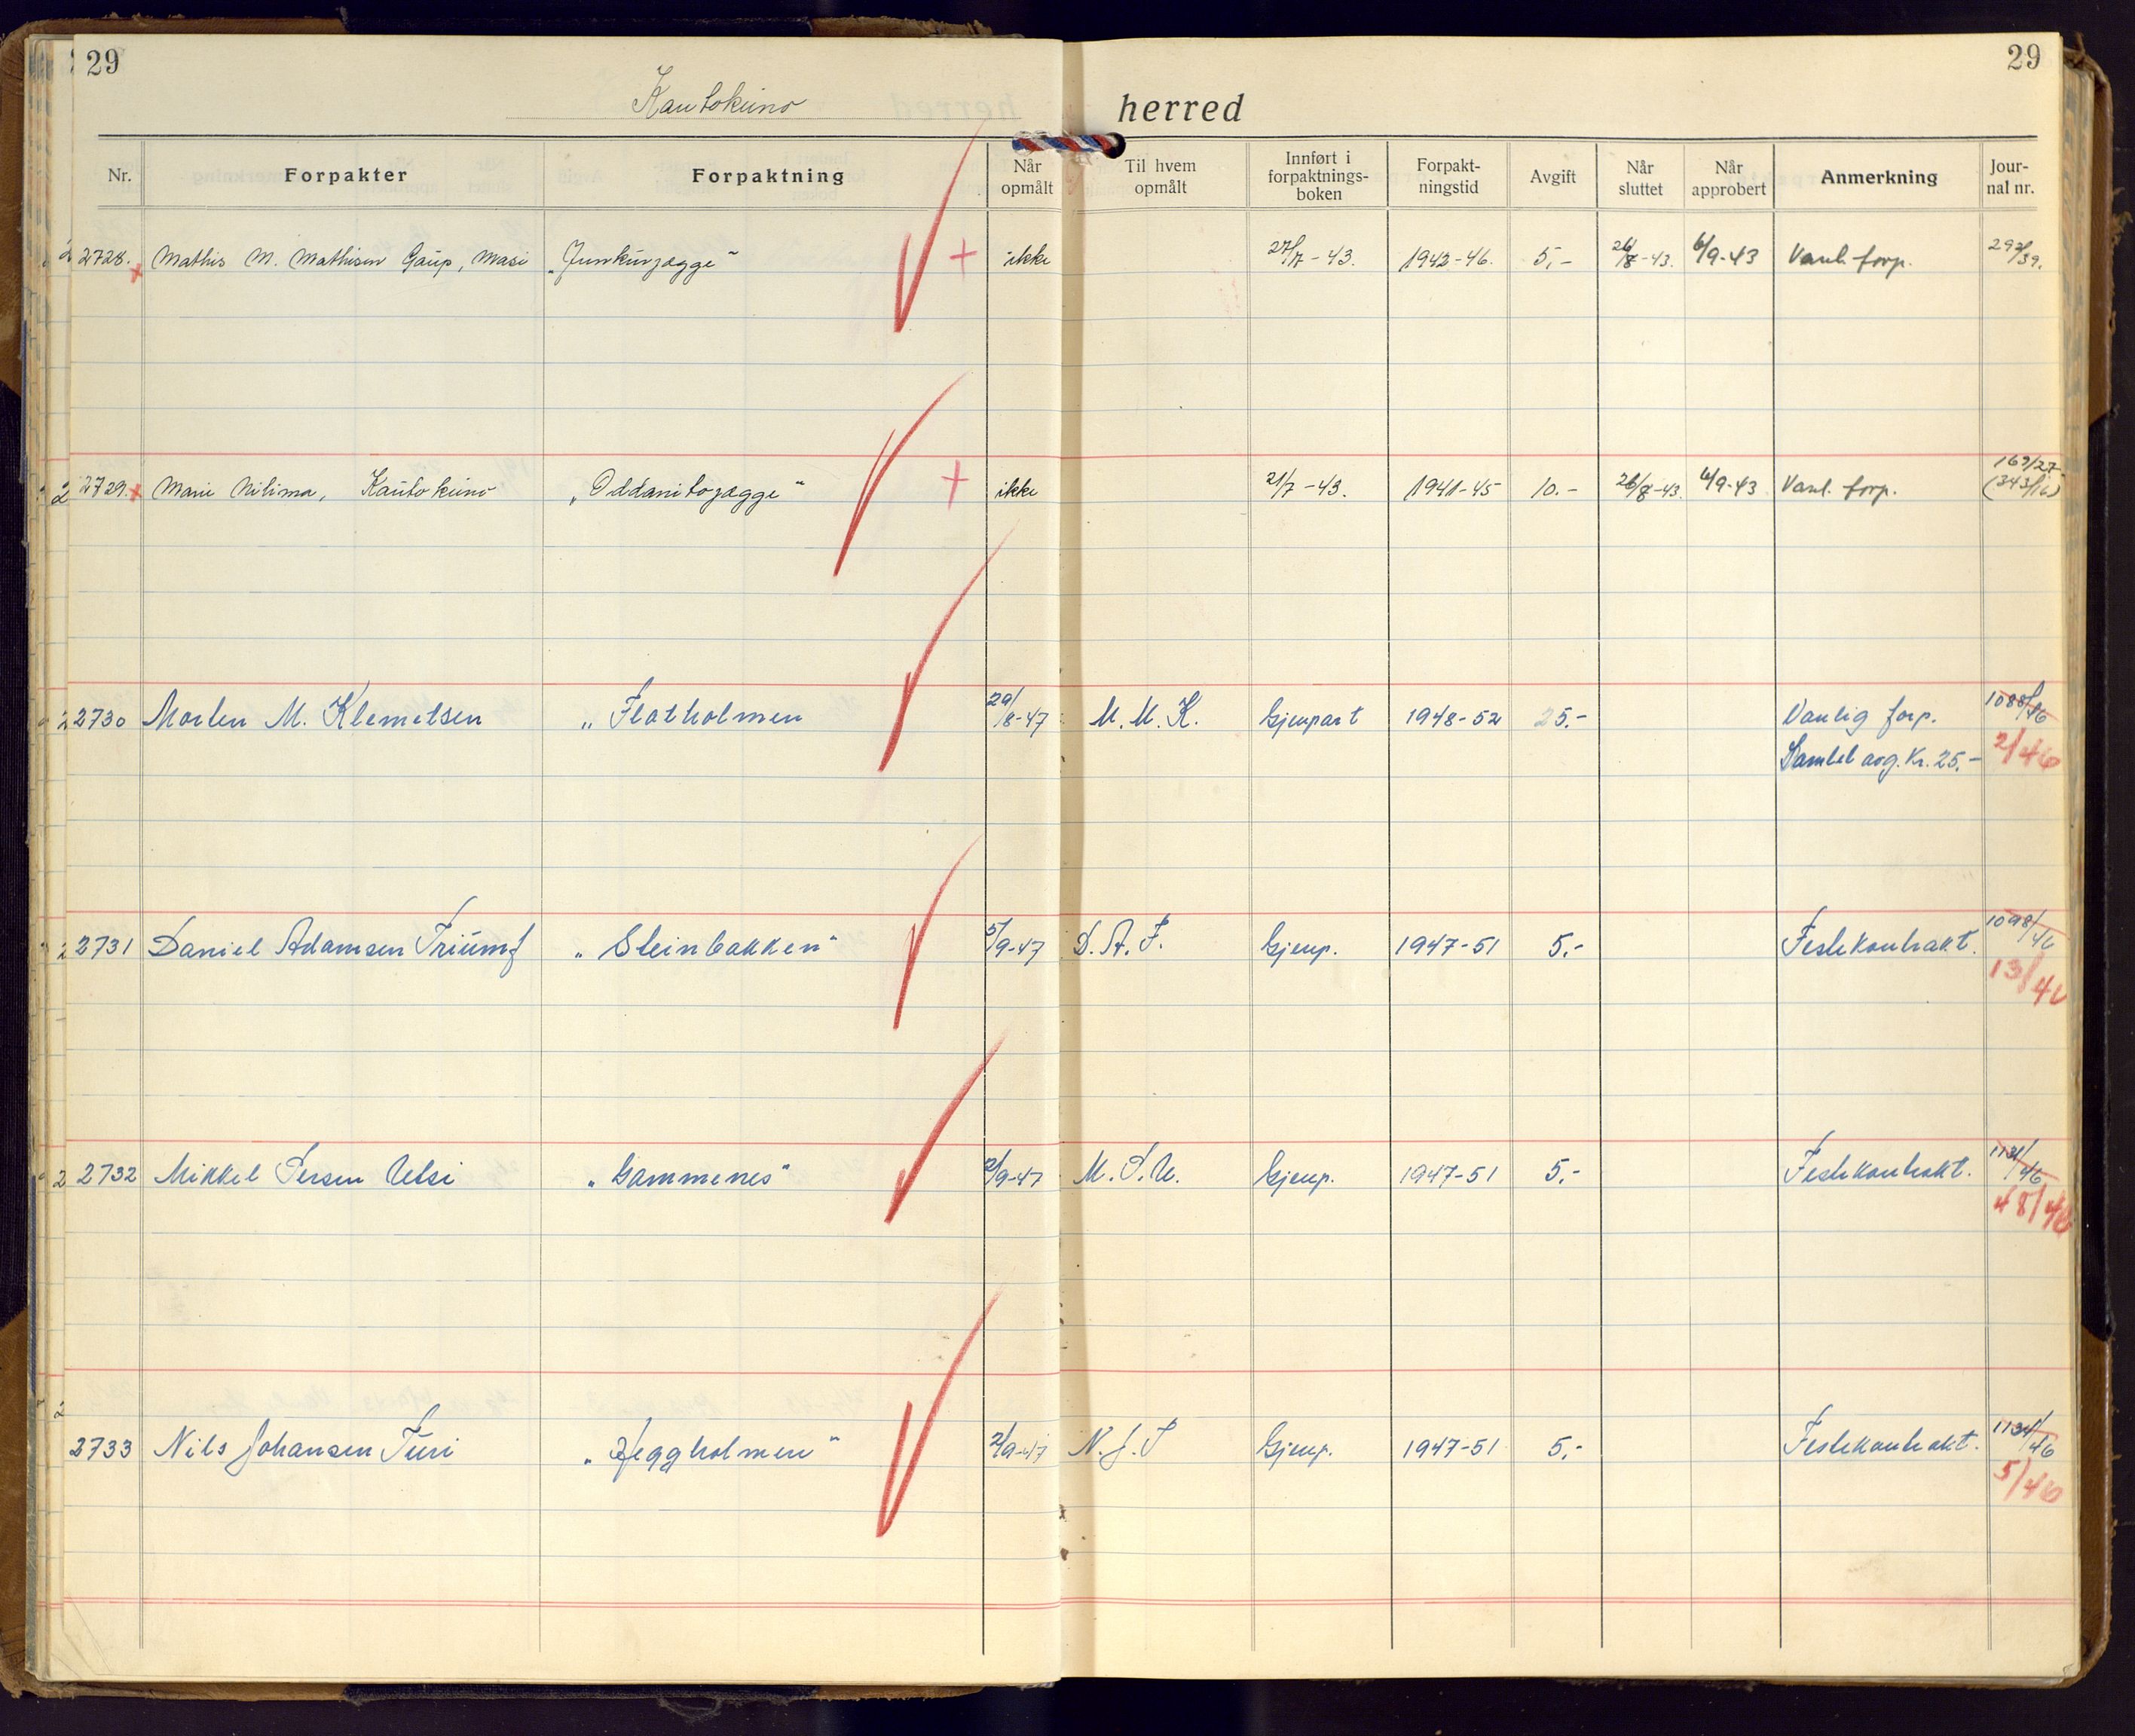 29
29
Kautokeino herred
Nr. Forpakter Forpaktning Når opmålt Til hvem opmålt Innført i forpaktnings-boken Forpakt-ningstid Avgift Når sluttet Når approbert Anmerkning Jour-nal nr.
2728. Mathis M. Mathisen Gaup, Masi „Junkurjægge“ + ikke 27/7-43. 1942-46. 5,- 26/8-43. 6/9-43 Vanl. forp. 293/39.
169/27
2729. Marie Nilima, Kautokeino „Oddanitojægge“ + ikke 21/7-43. 1941-45 10.- 26/8-43. 6/9-43 Vanl. forp. (343/16)
2730 Morten M. Klemetsen „Flatholmen 29/8-47 M. M. K. Gjenpart 1948-52 25.- Vanlig forp. 1088/46
Samlet avg. Kr. 25.- 2/46
2731 Daniel Adamsen Triumf „Steinbakken“ 5/9-47 D. A. T. Gjenp. 1947-51 5.- Festekontrakt. 1098/46
13/46
2732 Mikkel Persen Utsi „Gammenes“ 2/9-47 M. P. U. Gjenp. 1947-51 5.- Festekontrakt. 1131/46
48/46
2733 Nils Johansen Turi „Heggholmen“ 2/9-47 N. J. T Gjenp. 1947-51 5.- Festekontrakt. 1134/46
5/46